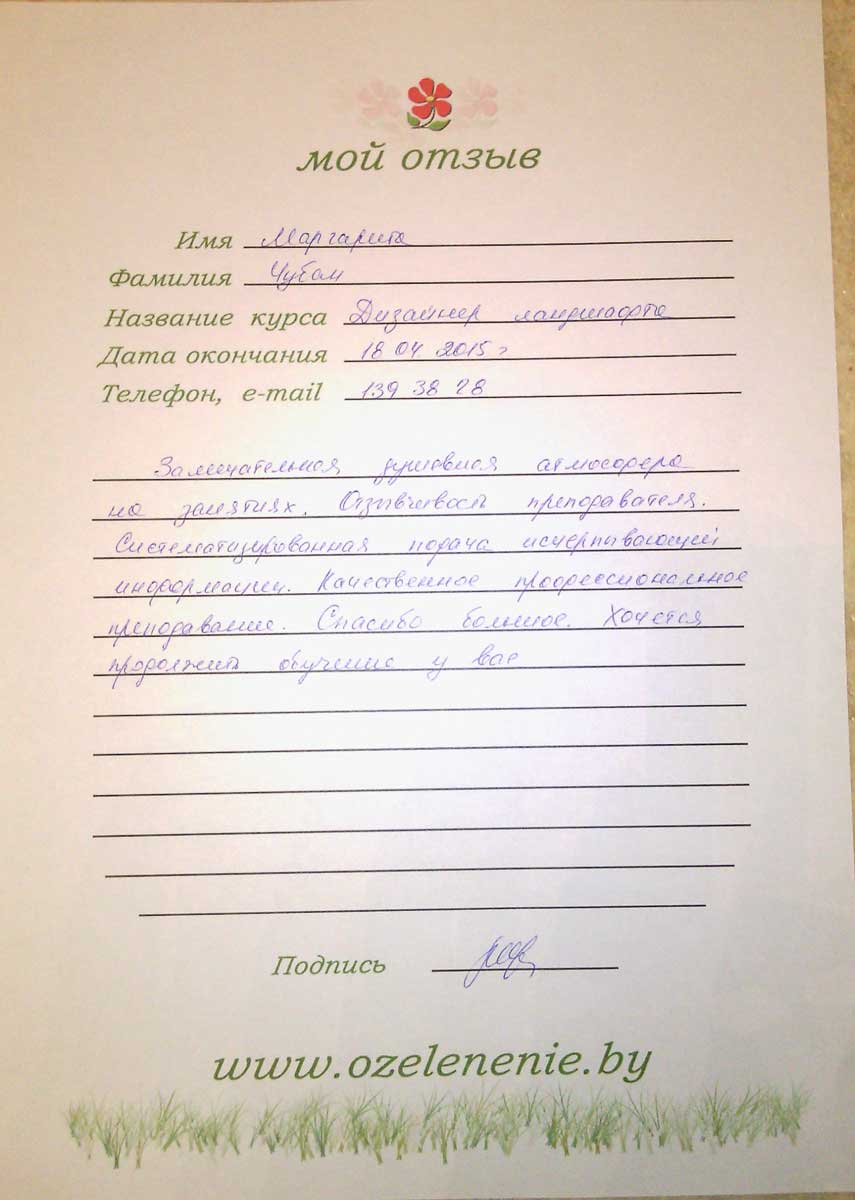 мой отзыв
Имя Маргарита
Фамилия
Название курса Дизайнер ландшафта
Дата окончания 18 04 2015г
Телефон, e-mail 139 38 28
Замечательная душевная атмосфера
на занятиях. Отзывчивость преподавателя.
Систематизированная подача исчерпывающей
информации. Качественное профессиональное
преподавание. Спасибо большое. Хочется
продолжить обучение у вас
Подпись
www.ozelenenie.by